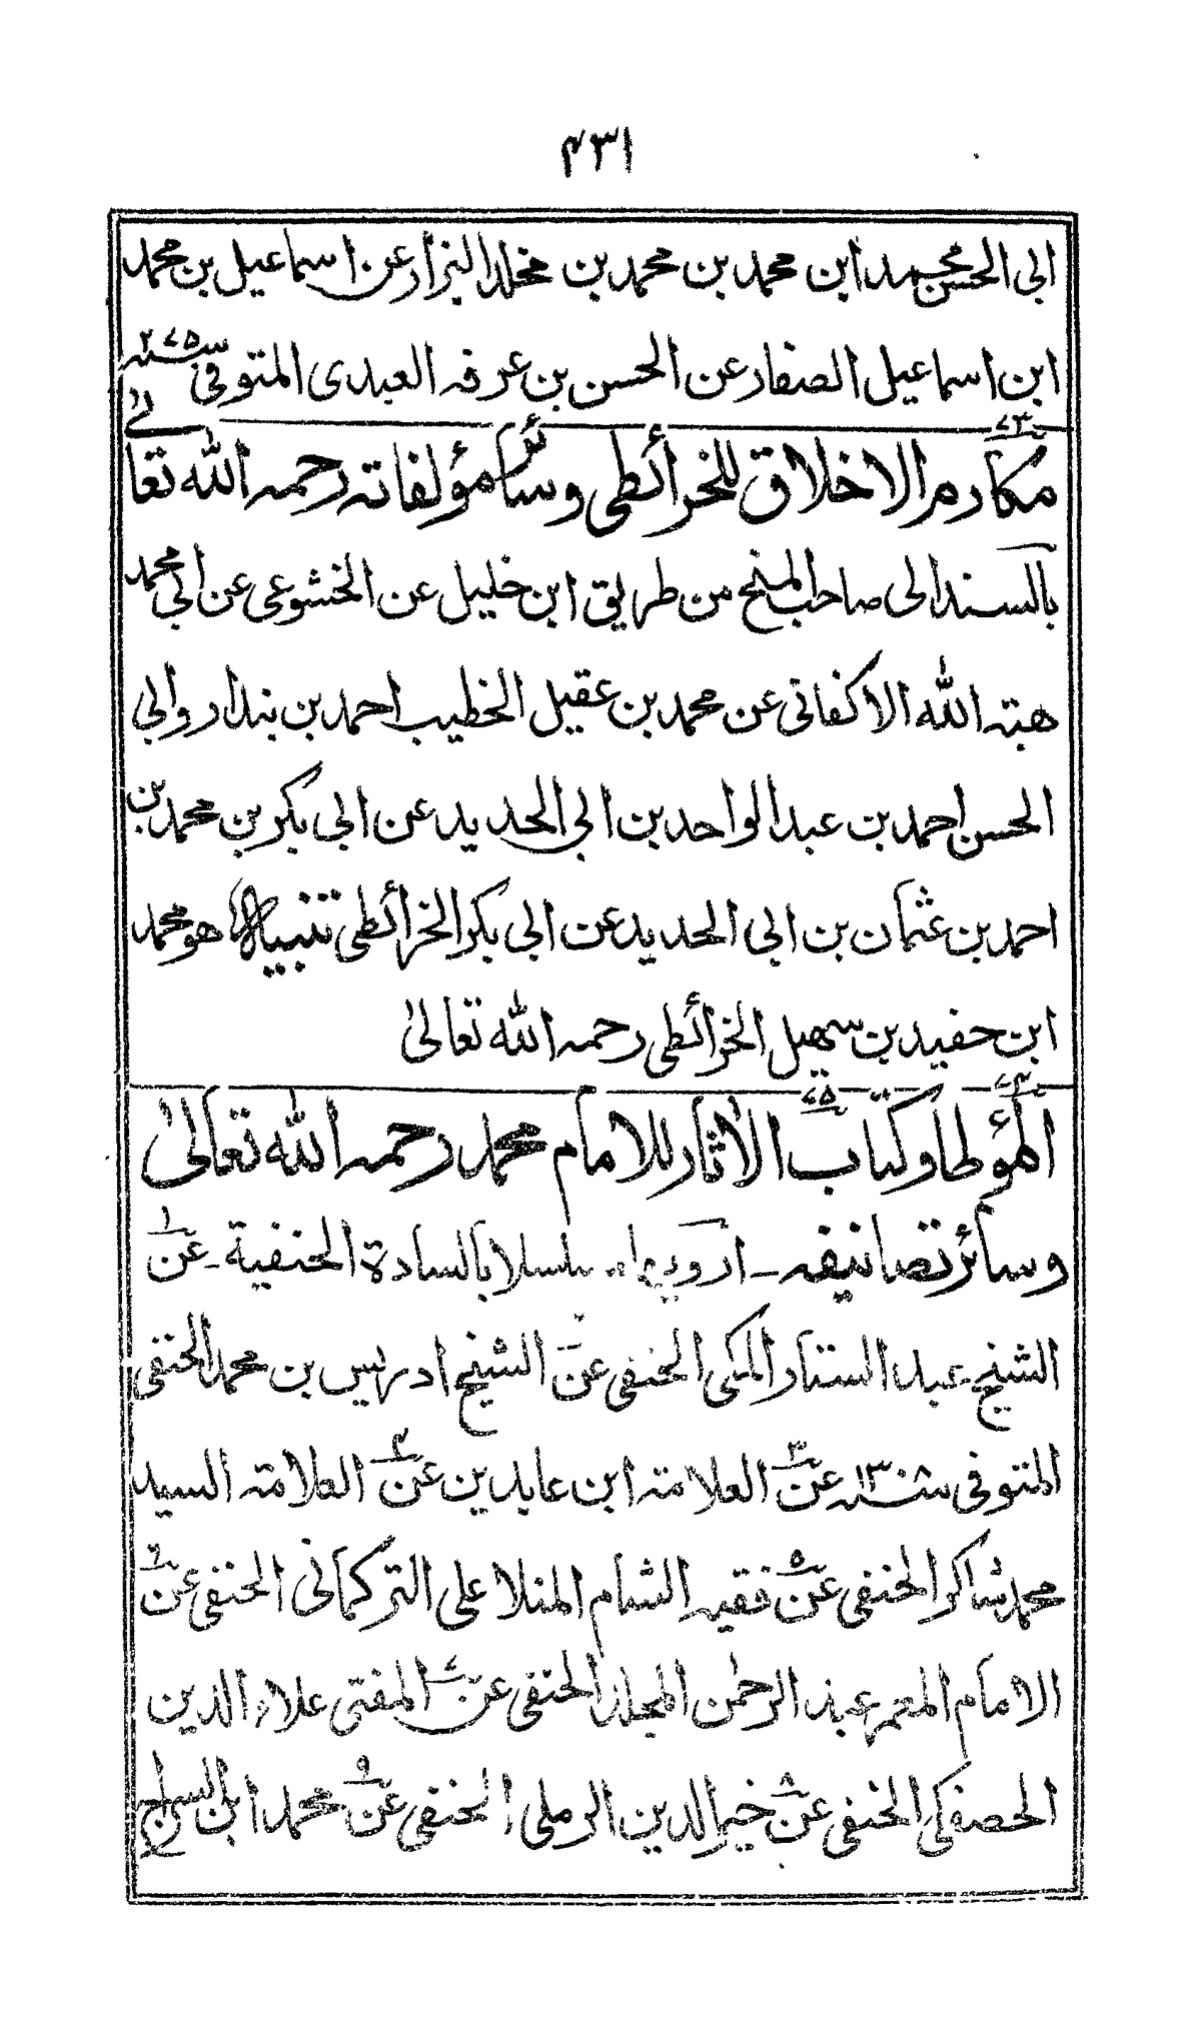 ۴۳۱
ابی الحسن محمد ابن محمد بن محمد بن مخلد البزار عن اسماعیل بن محمد
ابن اسماعیل الصفار عن الحسن بن عرفہ العبدی المتوفی سنہ ۲۷۵
۷۳ مکارم الاخلاق للخرائطی وسائر مؤلفاتہ رحمہ اللہ تعالےٰ
بالسند الی صاحب المنح من طریق ابن خلیل عن الخشوعی عن ابی محمد
ھبتہ اللہ الاکفانی عن محمد بن عقیل الخطیب احمد بن بندار وابی
الحسن احمد بن عبد الواحد بن ابی الحدید عن ابی بکر بن محمد بن
احمد بن عثمان بن ابی الحدید عن ابی بکر الخرائطی تنبیہ ھو محمد
ابن حفید بن سھیل الخرائطی رحمہ اللہ تعالیٰ
۷۴ المؤطا وکتاب ۷۵ الآثار للامام محمد رحمہ اللہ تعالیٰ
وسائر تصانیفہ۔ ارویہا مسلسلا بالسادۃ الحنفیۃ۔ عن ۱
الشیخ عبد الستار المکی الحنفی عن ۲ الشیخ ادریس بن محمد الحنفی
المتوفی سنہ ۱۳۰۰ عن ۳ العلامتہ ابن عابدین عن ۴ العلامتہ السید
محمد شاکر الحنفی عن ۵ فقیہ الشام المنلا علی الترکمانی الحنفی عن ۶
الامام المعمر عبد الرحمٰن المجلد الحنفی عن ۷ المفتی علاء الدین
الحصفکی الحنفی عن ۸ خیر الدین الرملی الحنفی عن ۹ محمد ابن السراج